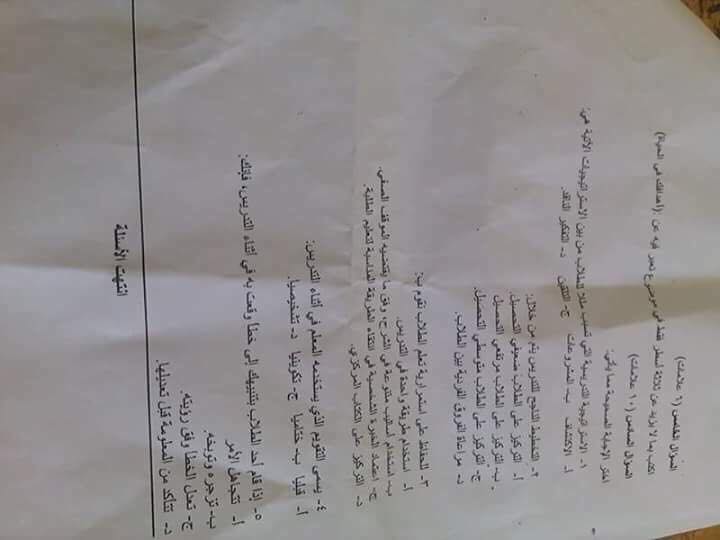 السؤال الخامس (٦ علامات)
اكتب بما لا يزيد عن ثلاثة أسطر فقط في موضوع تعبر فيه عن :(أهدافك في الحياة)
السؤال السادس (١٠ علامات)
اختر الإجابة الصحيحة مما يأتي:
١- الاستراتيجية التدريسية التي تسبب مللا للطلاب من بين الاستراتيجيات الآتية هي:
أ- الاكتشاف ب- المشروعات ج- التلقين د- التفكير الناقد.
٢- التخطيط الناجح للتدريس يتم من خلال:
أ- التركيز على الطلاب ضعيفي التحصيل.
ب- التركيز على الطلاب مرتفعي التحصيل
ج- التركيز على الطلاب متوسطي التحصيل.
د- مراعاة الفروق الفردية بين الطلاب.
٣- للحفاظ على استمرارية تعلم الطلاب نقوم ب:
أ- استخدام طريقة واحدة في التدريس.
ب- استخدام أساليب متنوعة في الشرح، وفق ما يقتضيه الموقف الصفي.
ج- اعتماد الخبرة الشخصية في انتقاء الطريقة المناسبة لتعليم الطلبة.
د- التركيز على الكتاب المركزي.
٤- يسمى التقويم الذي يستخدمه المعلم في أثناء التدريس:
أ- قبليا ب- ختاميا ج- تكوينيا د- تشخيصيا.
٥- إذا قام أحد الطلاب بتنبيهك إلى خطأ وقعت به في أثناء التدريس، فإنك:
أ- تتجاهل الأمر
ب- تزجره وتوبخه.
ج- تعدل الخطأ وفق رؤيته.
د- تتأكد من المعلومة قبل تعديلها.
انتهت الأسئلة